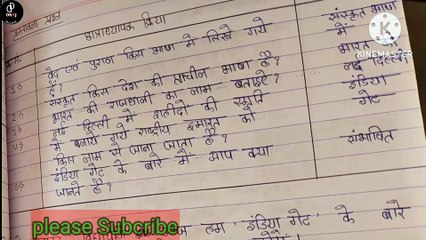 प्रस्तावना प्रश्न
छात्राध्यापक क्रिया
1→ वेद एवं पुराण किस भाषा में लिखे गये है?
संस्कृत भाषा में
2→ संस्कृत किस देश की प्राचीन भाषा है?
भारत
3→ भारत की राजधानी का नाम बताइये?
नई दिल्ली
4→ नई दिल्ली में शहीदों की स्मृति
में बनाये गये राष्ट्रीय इमारत को
किस नाम से जाना जाता है?
इंडिया गेट
5→ इंडिया गेट के बारे में आप क्या
जानते है?
संभावित
हम "इंडिया गेट" के बारे
please Subcribe
KINEMASTER